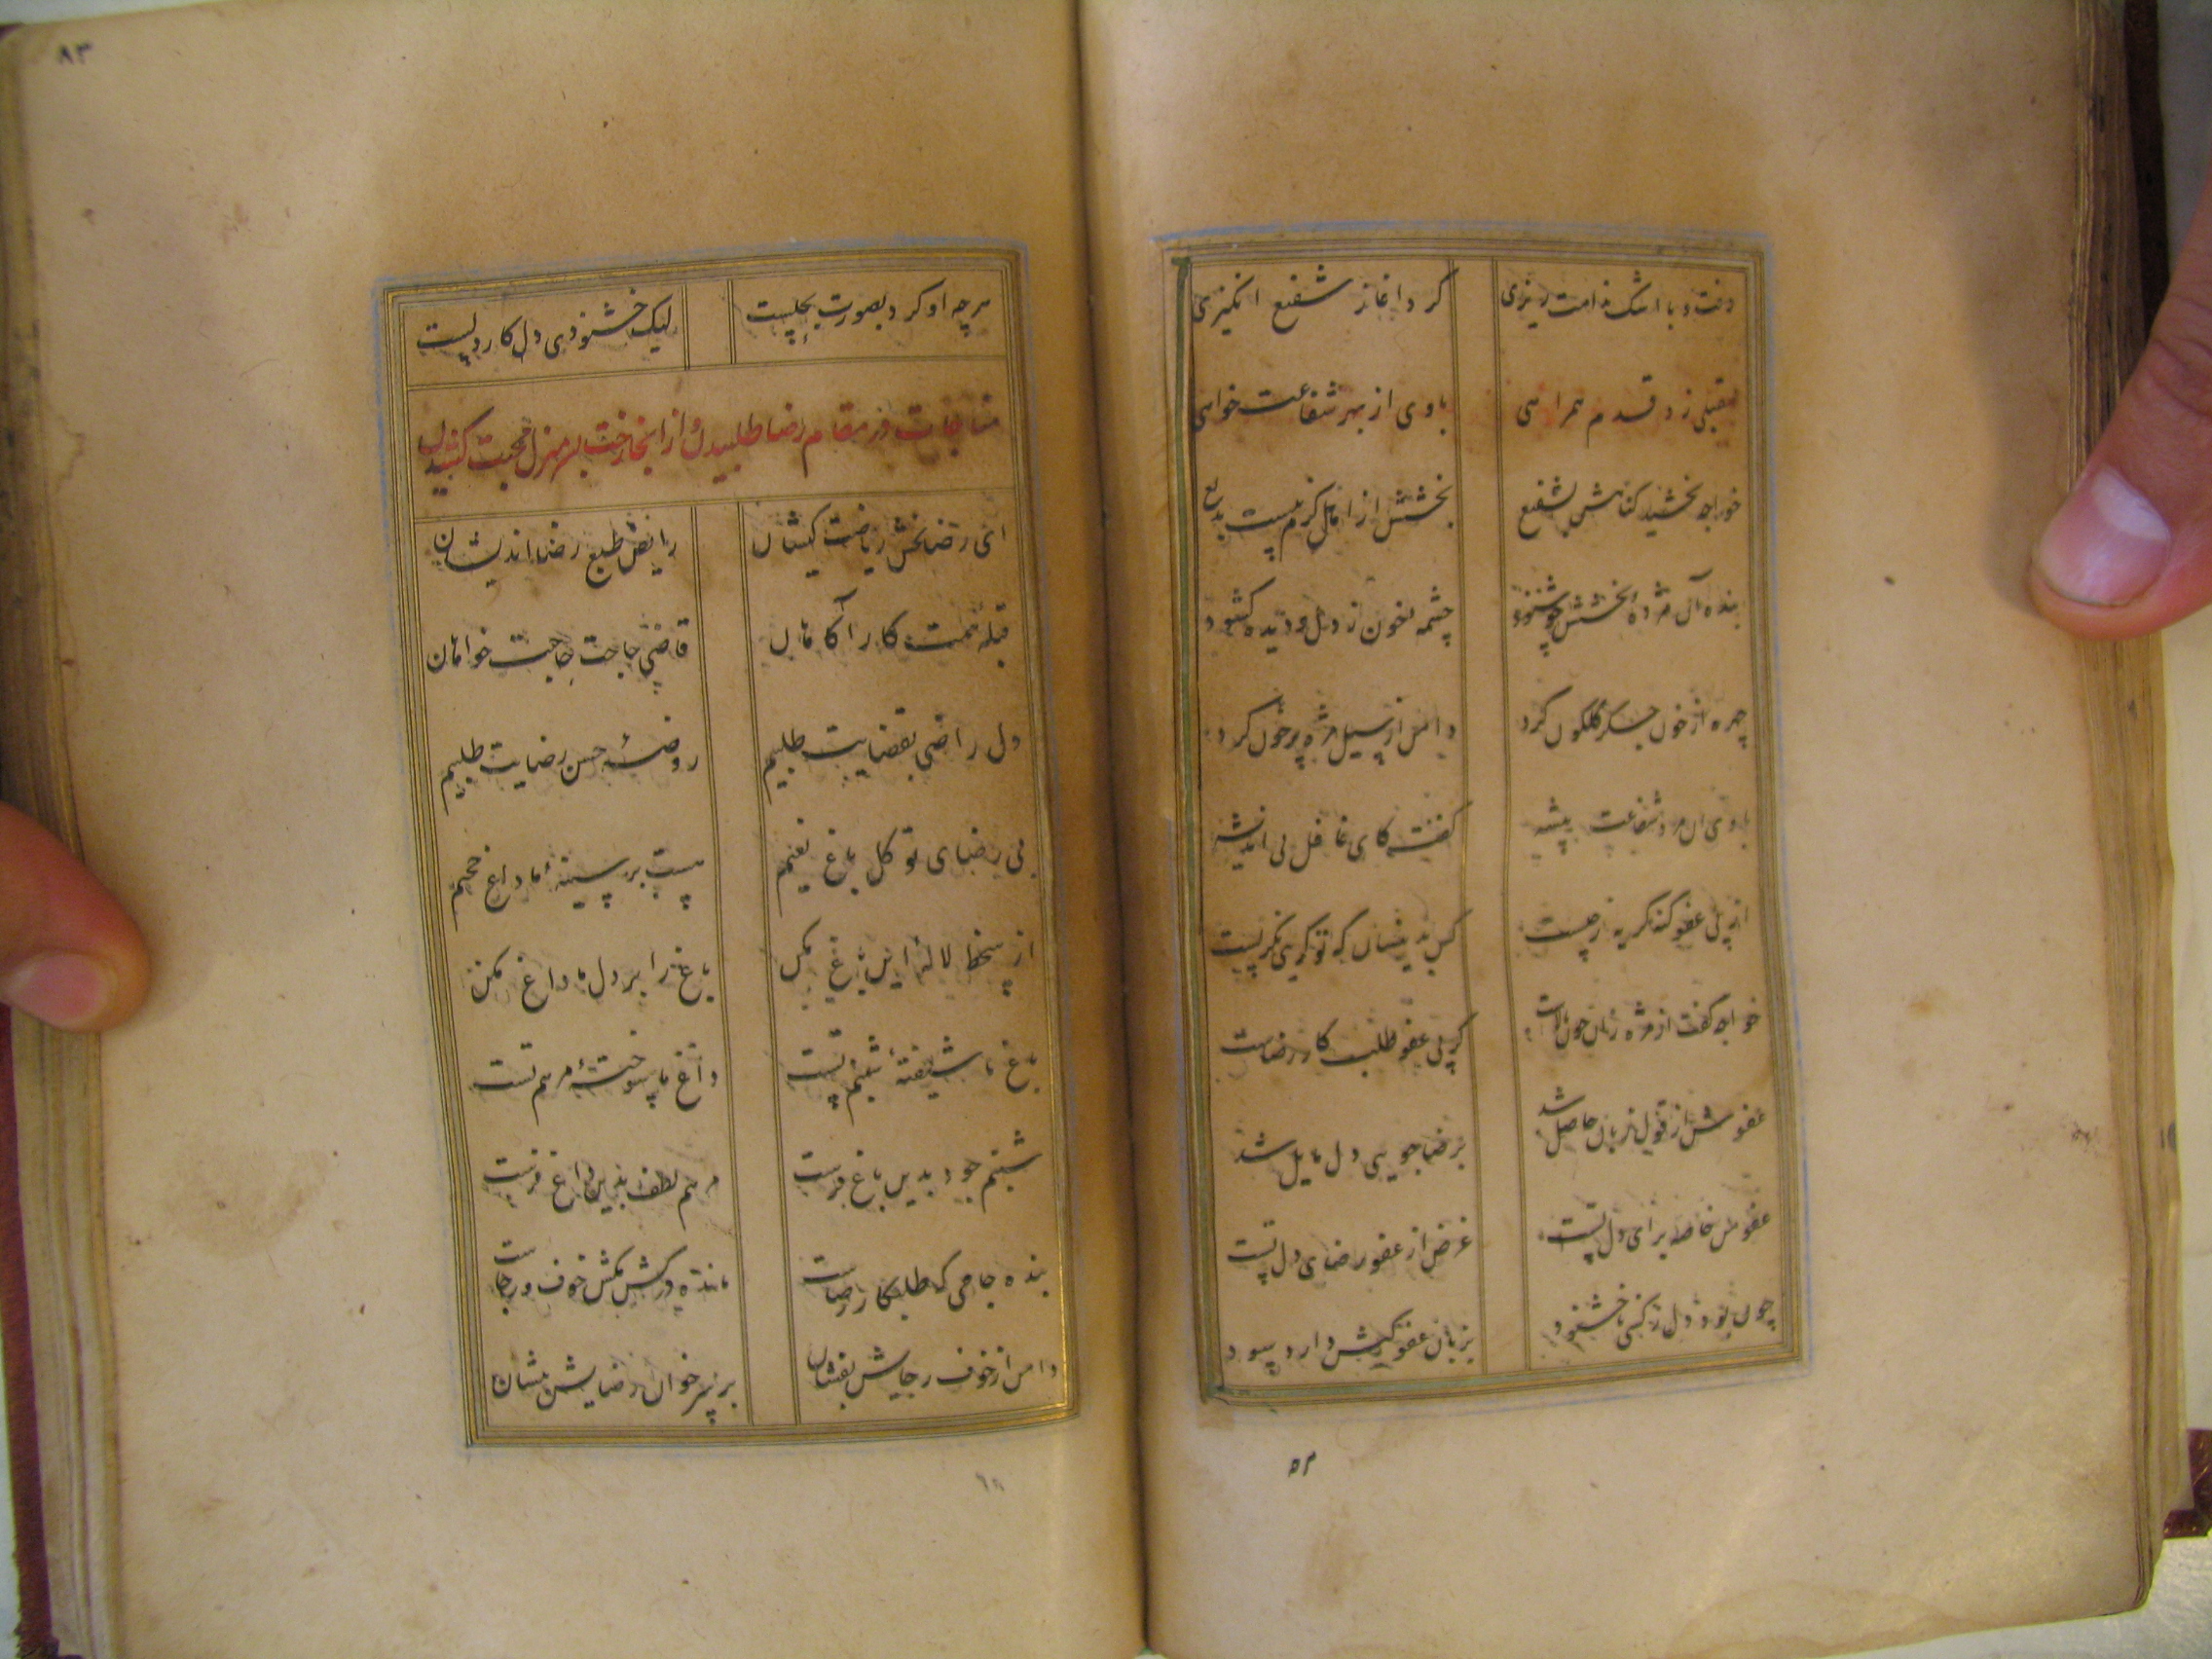 رفت و با اشک ندامت ریزی کرد آغاز شفیع انگیزی
مقبلی زد قدم همراهی با وی از بهر شفاعت خواهی
خواجه بخشید گناهش بشفیع بخشش از اهل کرم نیست بدیع
بنده آن مژده بخشش چو شنود چشمه خون ز دل و دیده کشود
چهره از خون جگر گلگون کرد دامن از سیل مژه پر خون کرد
با وی آن مرد شفاعت پیشه گفت کای غافل بی اندیشه
از پی عفو گنه گریه ز چیست کس بدینسان که تو گریی نگریست
خواجه گفت از مژه زان خون پالاست کز پی عفو طلبکار رضاست
عفوش از قول زبان حاصل شد برضاجویی دل مایل شد
عفو من خاصه برای دل تست غرض از عفو رضای دل تست
چون نبود دل ز کسی خشنود بزبان عفو کیش دارد سود
هرچه او کرد بصورت بحلیست لیک خشنودی دل کار دلیست
مناجات در مقام رضا طلبیدن و از انجا رخت بسر منزل محبت کشیدن
ای رضابخش ریاضت کیشان رایض طبع رضا اندیشان
قبله همت کار آگاهان قاضی حاجت حاجت خواهان
دل راضی بقضایت طلبیم روضه حسن رضایت طلبیم
بی رضای تو گل باغ نعیم هست بر سینه ما داغ جحیم
از سخط لاله این باغ مکن باغ را بر دل ما داغ مکن
باغ ما شیفته شبنم تست داغ ما سوخته مرهم تست
شبنم جود بدین باغ فرست مرهم لطف بدین داغ فرست
بنده جامی که طلبکار رضاست مانده در کشمکش خوف و رجاست
دامن از خوف و رجایش بفشان بر سر خوان رضایش بنشان
۸۳